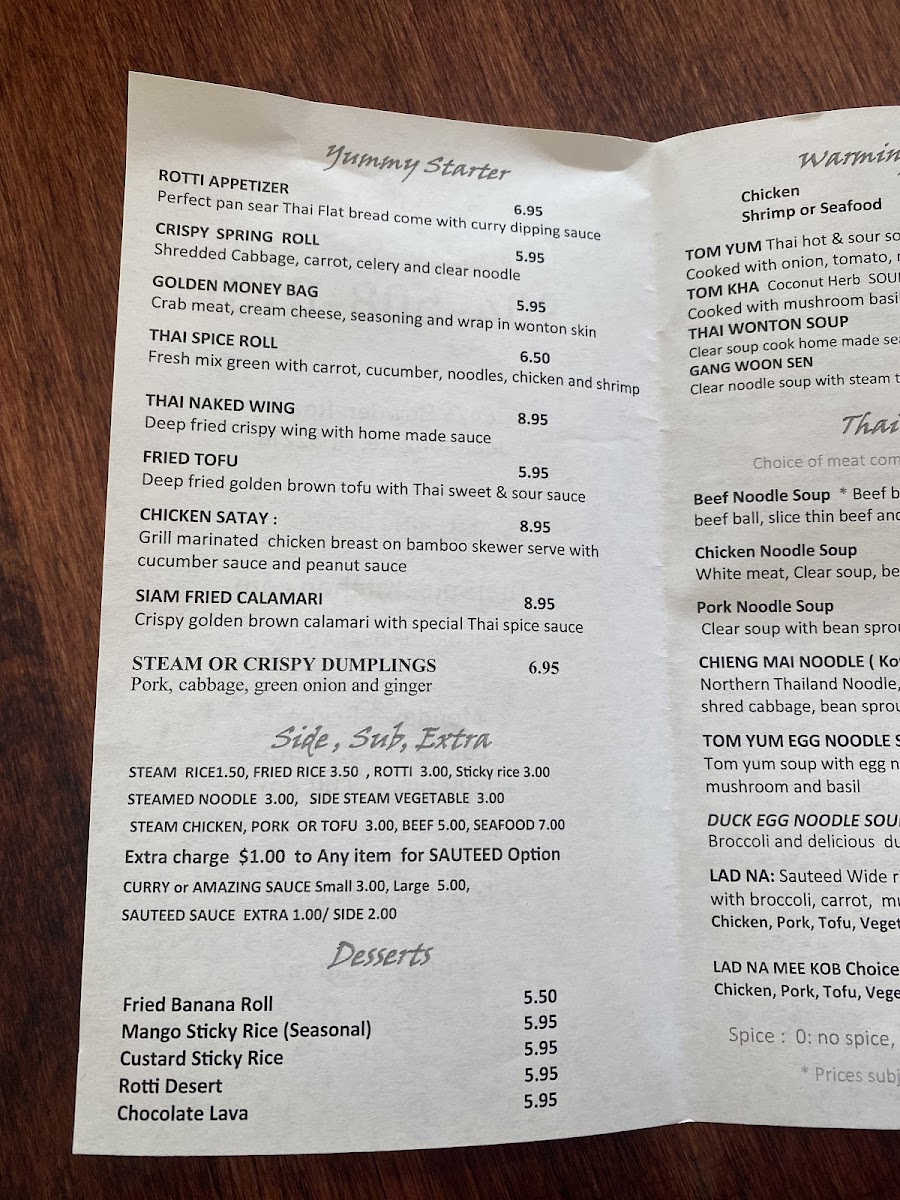 Yummy Starter
ROTTI APPETIZER 6.95
Perfect pan sear Thai Flat bread come with curry dipping sauce
CRISPY SPRING ROLL 5.95
Shredded Cabbage, carrot, celery and clear noodle
GOLDEN MONEY BAG 5.95
Crab meat, cream cheese, seasoning and wrap in wonton skin
THAI SPICE ROLL 6.50
Fresh mix green with carrot, cucumber, noodles, chicken and shrimp
THAI NAKED WING 8.95
Deep fried crispy wing with home made sauce
FRIED TOFU 5.95
Deep fried golden brown tofu with Thai sweet & sour sauce
CHICKEN SATAY : 8.95
Grill marinated chicken breast on bamboo skewer serve with
cucumber sauce and peanut sauce
SIAM FRIED CALAMARI 8.95
Crispy golden brown calamari with special Thai spice sauce
STEAM OR CRISPY DUMPLINGS 6.95
Pork, cabbage, green onion and ginger
Side, Sub, Extra
STEAM RICE1.50, FRIED RICE 3.50 , ROTTI 3.00, Sticky rice 3.00
STEAMED NOODLE 3.00, SIDE STEAM VEGETABLE 3.00
STEAM CHICKEN, PORK OR TOFU 3.00, BEEF 5.00, SEAFOOD 7.00
Extra charge $1.00 to Any item for SAUTEED Option
CURRY or AMAZING SAUCE Small 3.00, Large 5.00,
SAUTEED SAUCE EXTRA 1.00/ SIDE 2.00
Desserts
Fried Banana Roll 5.50
Mango Sticky Rice (Seasonal) 5.95
Custard Sticky Rice 5.95
Rotti Desert 5.95
Chocolate Lava 5.95
Warmin
Chicken
Shrimp or Seafood
TOM YUM Thai hot & sour so
Cooked with onion, tomato,
TOM KHA Coconut Herb SOU
Cooked with mushroom basi
THAI WONTON SOUP
Clear soup cook home made sea
GANG WOON SEN
Clear noodle soup with steam t
Thai
Choice of meat com
Beef Noodle Soup * Beef b
beef ball, slice thin beef and
Chicken Noodle Soup
White meat, Clear soup, be
Pork Noodle Soup
Clear soup with bean sprou
CHIENG MAI NOODLE ( Ko
Northern Thailand Noodle,
shred cabbage, bean sprou
TOM YUM EGG NOODLE S
Tom yum soup with egg n
mushroom and basil
DUCK EGG NOODLE SOU
Broccoli and delicious du
LAD NA: Sauteed Wide r
with broccoli, carrot, mu
Chicken, Pork, Tofu, Veget
LAD NA MEE KOB Choice
Chicken, Pork, Tofu, Vege
Spice : 0: no spice,
* Prices subj